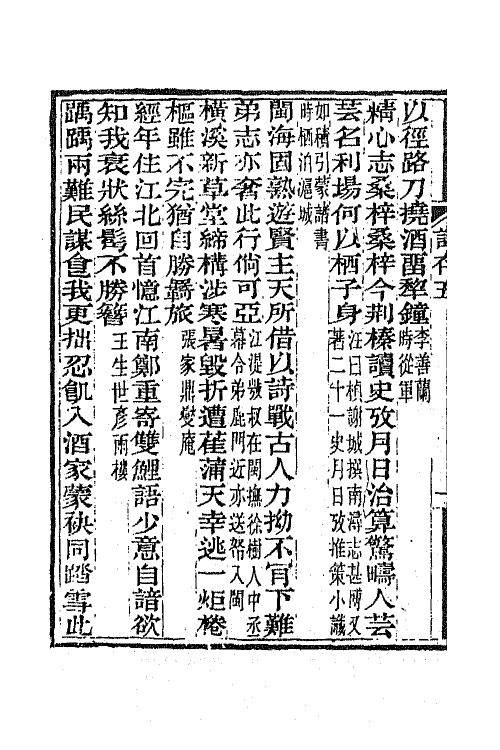 以徑路刀撓酒醻犂鐘李善蘭時從軍
精心志桑梓桑梓今荆榛讀史攷月日治算驚疇人芸
芸名利場何以栖子身汪曰楨謝城撰南潯志甚博又著二十一史月日攷推策小識
如積引蒙諸書時栖泊滬城
閩海固熟遊賢主天所借以詩戰古人力拗不肎下難
弟志亦奢此行倘可亞江湜弢叔在閩撫徐樹人中丞幕令弟鹿門近亦送帑入閩
橫溪新草堂締構涉寒暑毀折遭萑蒲天幸逃一炬棬
樞雖不完猶自勝羇旅張家鼎燮庵
經年住江北回首憶江南鄭重寄雙鯉語少意自諳欲
知我衰狀絲鬂不勝簪王生世彥雨樓
踽踽兩難民謀會我更拙忍飢入酒家蒙袂同踏雪此
詩存五